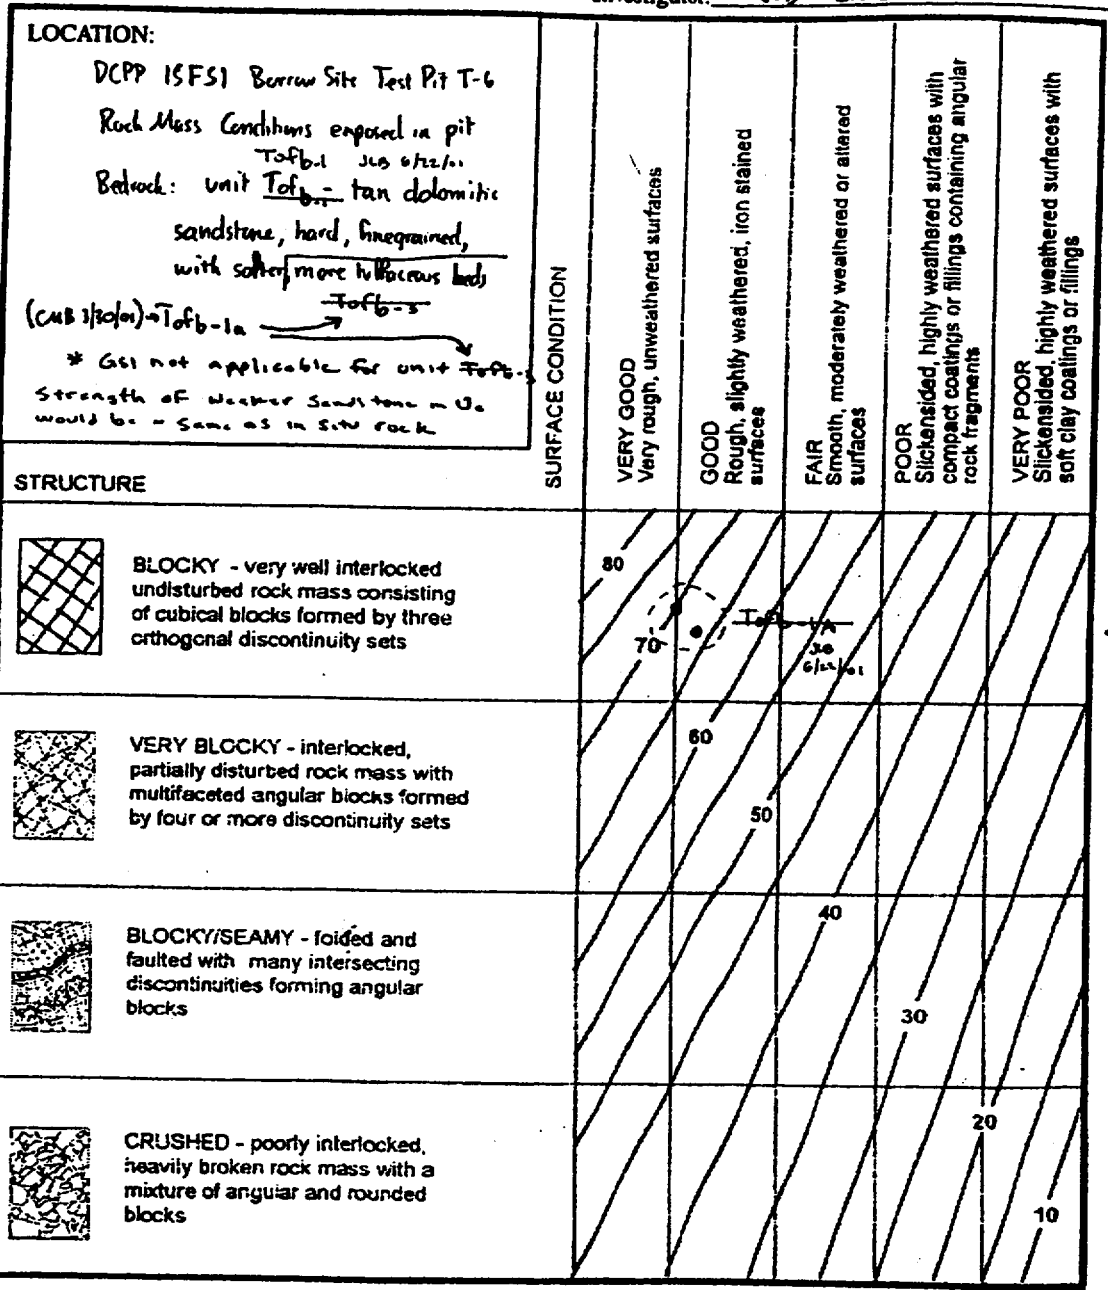 Investigator:
LOCATION:
DCPP ISFSI Borrow Site Test Pit T-6
Rock Mass Conditions exposed in pit
Tofb-1 JLB 6/22/01
Bedrock: unit Tofb- tan dolomitic
sandstone, hard, finegrained,
with softer, more tuffaceous beds
Tofb-3
(CMB 3/30/01) Tofb-1a
* GSI not applicable for unit Tofb-3
Strength of weaker Sandstone in
would be ~ same as in situ rock
SURFACE CONDITION
VERY GOOD
Very rough, unweathered surfaces
GOOD
Rough, slightly weathered, iron stained
surfaces
FAIR
Smooth, moderately weathered or altered
surfaces
POOR
Slickensided, highly weathered surfaces with
compact coatings or fillings containing angular
rock fragments
VERY POOR
Slickensided, highly weathered surfaces with
soft clay coatings or fillings
STRUCTURE
BLOCKY - very well interlocked
undisturbed rock mass consisting
of cubical blocks formed by three
orthogonal discontinuity sets
80
70
Tofb-1A
JLB
6/22/01
VERY BLOCKY - interlocked,
partially disturbed rock mass with
multifaceted angular blocks formed
by four or more discontinuity sets
60
50
BLOCKY/SEAMY - folded and
faulted with many intersecting
discontinuities forming angular
blocks
40
30
CRUSHED - poorly interlocked,
heavily broken rock mass with a
mixture of angular and rounded
blocks
20
10